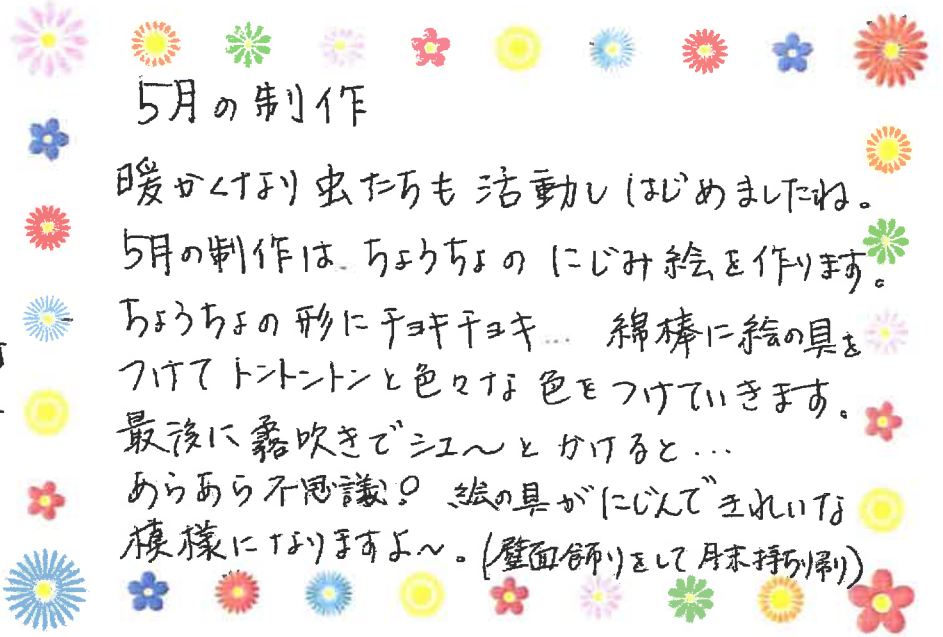 5月の制作
暖かくなり虫たちも活動しはじめましたね。
5月の制作は ちょうちょの にじみ絵を作ります。
ちょうちょの形にチョキチョキ… 綿棒に絵の具を
つけてトントントンと色々な色をつけていきます。
最後に霧吹きでシュ〜とかけると…
あらあら不思議! 絵の具がにじんできれいな
模様になりますよ〜。(壁面飾りをして月末持ち帰り)